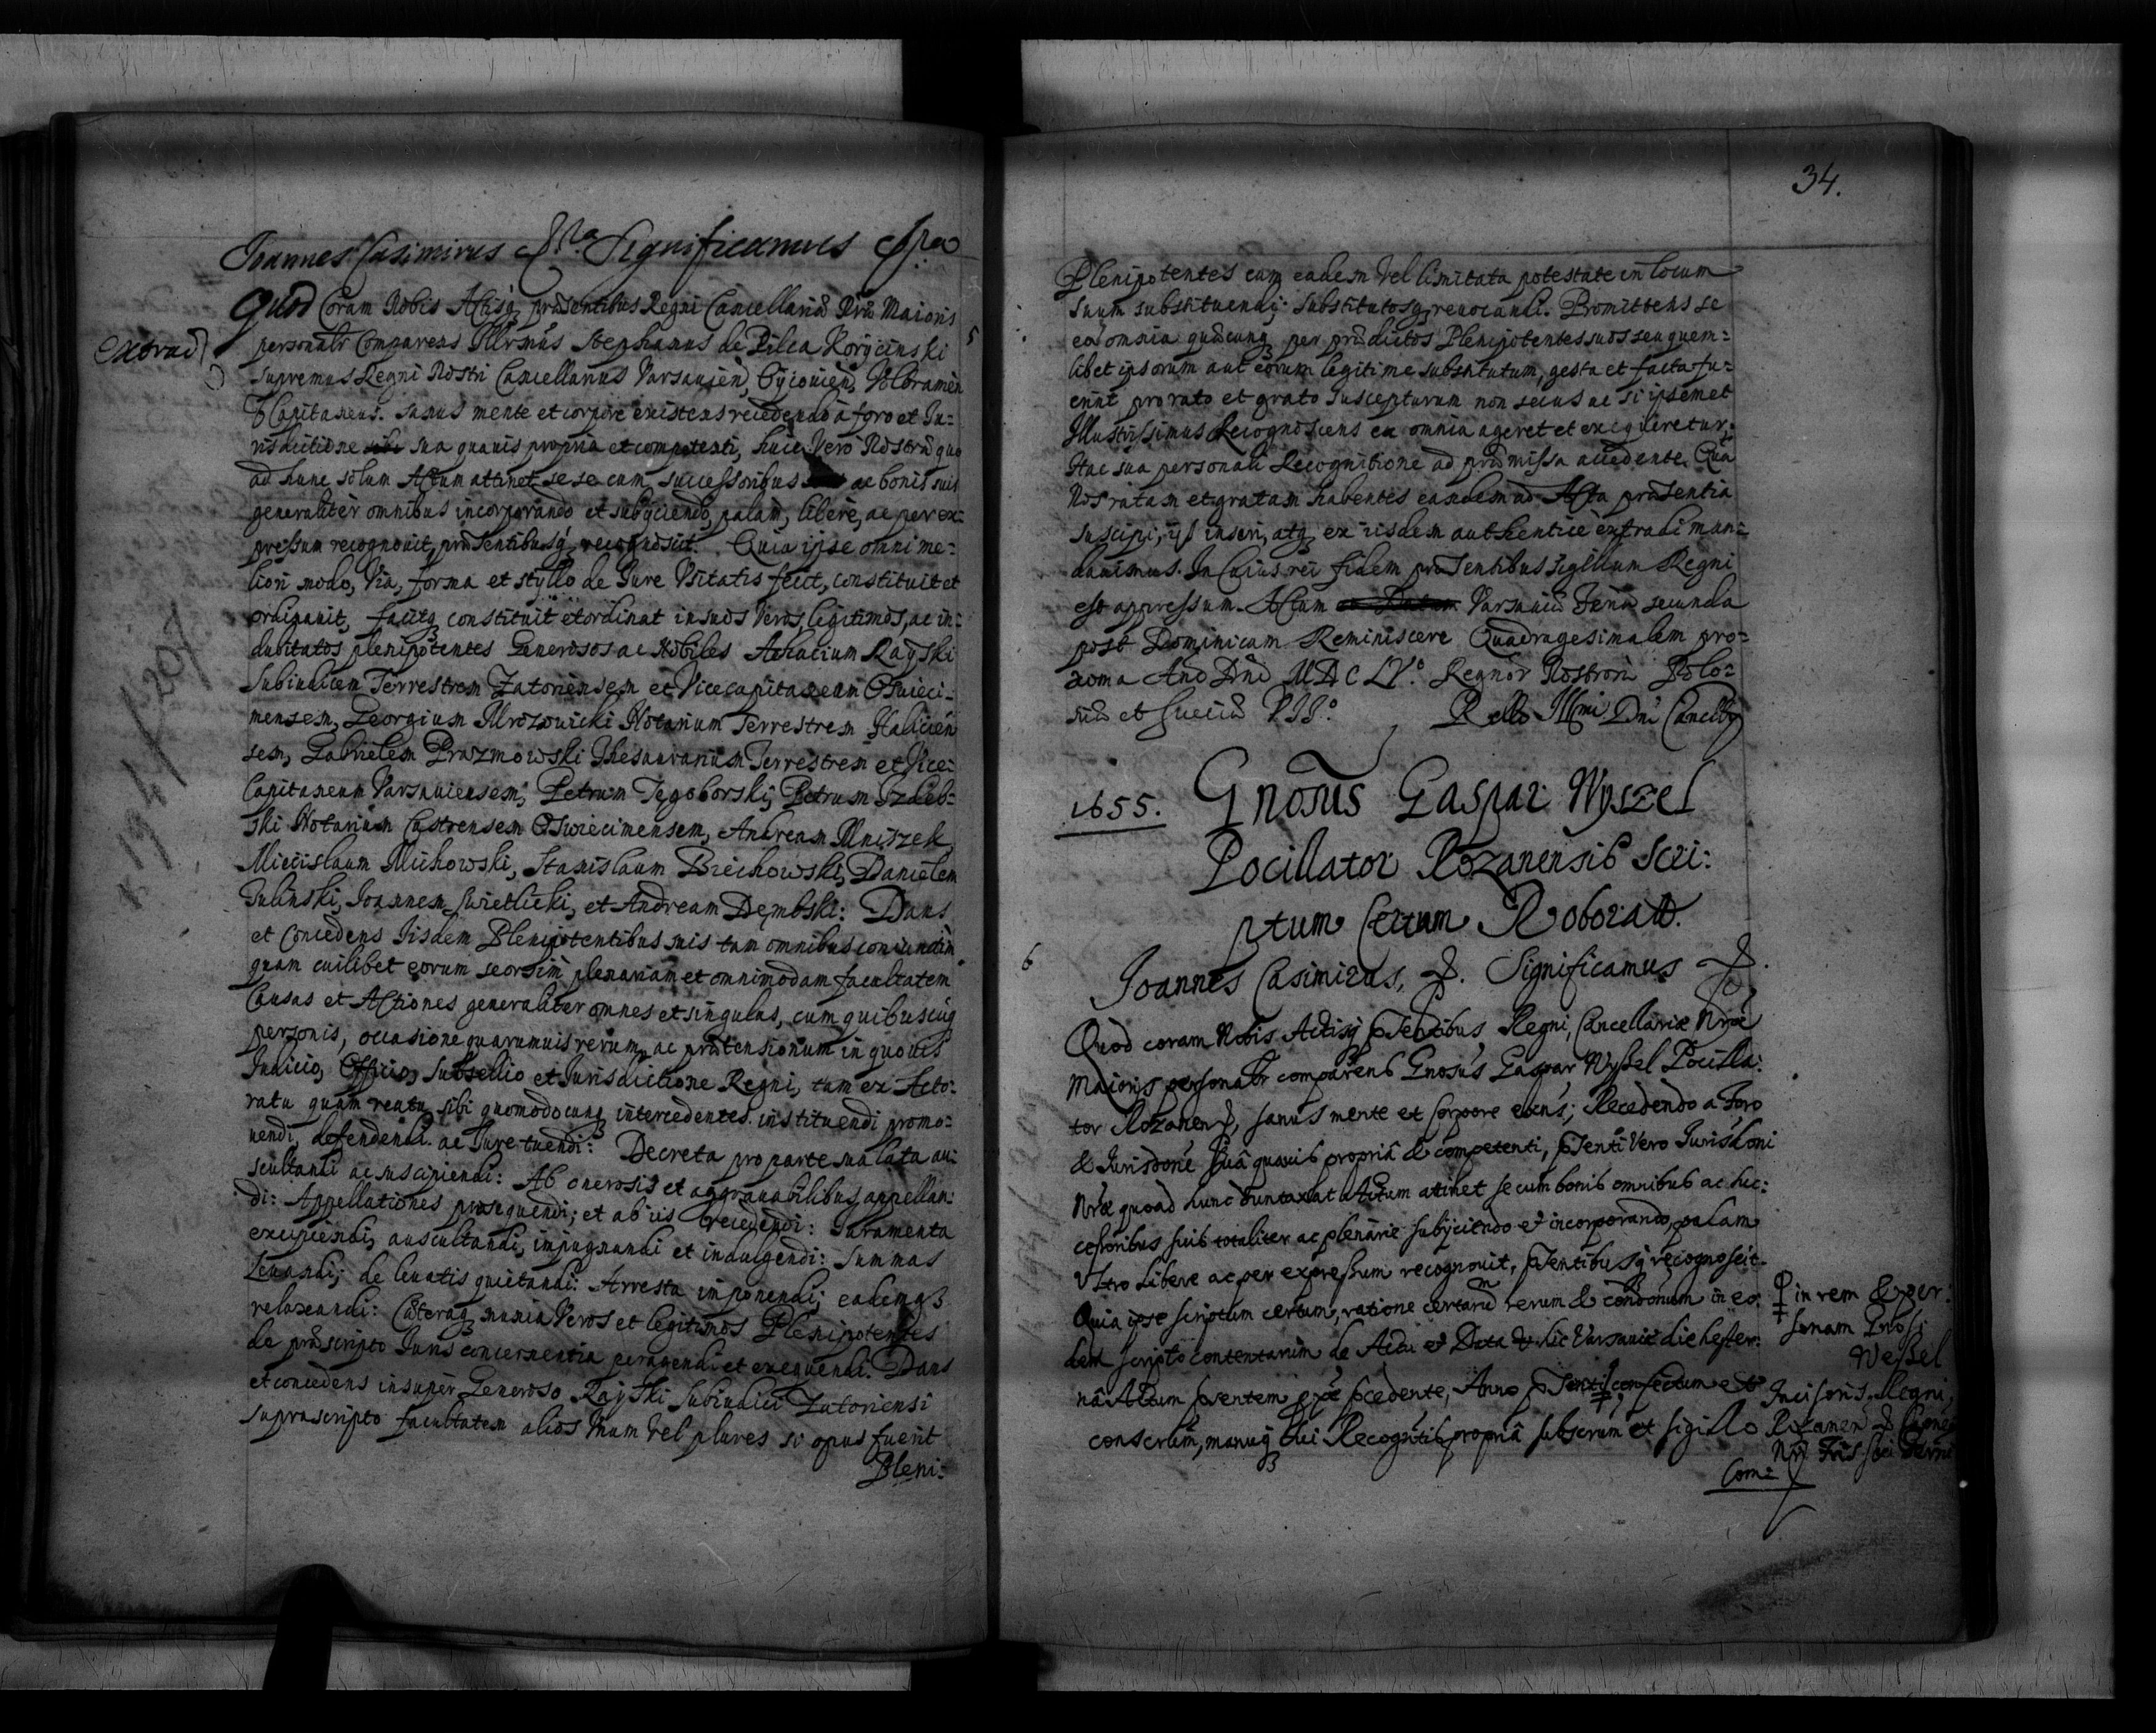 Joannes Casimirus &ca Significamus &ca
Quod Coram Nobis Actisq præsentibus Regni Cancellariæ Nræ Maioris
extrad
personalr Comparens Illrsmus Stephanus de Pilca Korycinski
5
supremus Regni Nostri Cancellarius Varsauien, Oycouien, Wolbramen
Capitaneus. sanus mente et corpore existens recedendo à foro et Ju=
risdictione sua quauis propria et competenti, huic Vero Nostræ quo
ad hunc solum Actum attinet se se cum successoribus ac bonis suis
generaliter omnibus incorporando et subijciendo, palam, libere, ac per ex=
pressum recognouit, præsentibusq recognoscit. Quia ipse omni me=
liori modo, Via, forma et styllo de Jure Vsitatis fecit, constituit et
ordinauit, facitq constituit et ordinat in suos Veros, legitimos, ac in=
dubitatos plenipotentes Generosos ac Nobiles Achacium Rayski
Subiudicem Terrestrem Zatoriensem et Vicecapitaneum Oswieci=
mensem, Georgium Mrozowicki Notarium Terrestrem Halicien
sem, Gabrielem Prazmowski Thesaurarium Terrestrem et Vice=
Capitaneum Varsauiensem, Petrum Tęgoborski, Petrum Izdeb=
ski Notarium Castrensem Oswiecimensem, Andream Mniszek,
Miecislaum Michowski, Stanislaum Biechowski, Danielem
Julinski, Joannem Swietlicki, et Andream Dembski: Dans
et Concedens Iisdem Plenipotentibus suis tam omnibus coniunctim
quam cuilibet eorum seorsim plenariam et omnimodam facultatem
Causas et Actiones generaliter omnes et singulas, cum quibuscuq
personis, occasione quarumuis rerum, ac prætensionum in quouis
Judicio, Officio, Subsellio et Jurisdictione Regni, tam ex Acto=
ratu quam reatu sibi quomodocunq intercedentes instituendi promo=
uendi, defendendi ac Jure tuendi: Decreta pro parte sua lata au=
scultandi ac suscipiendi: Ab onerosis et aggrauabilibus appellan=
di: Appellationes prosequendi; et ab iis recedendi: Juramenta
excipiendi, auscultandi, impugnandi et indulgendi: Summas
Leuandi; de leuatis quietandi: Arresta imponendi; eademq
relaxandi: Cæteraq munia Veros et legitimos Plenipotentes
de præscripto Juris concernentia peragendi et exequendi. Dans
et concedens insuper Generoso Rayski Subiudici Zatoriensi
suprascripto facultatem alios Vnum vel plures si opus fuerit
Pleni=
34.
Plenipotentes cum eadem Vel limitata potestate in locum
suum substituendi; substitutosq reuocandi. Promittens se
ea omnia quæcunq per prædictos Plenipotentes suos seu quem=
libet ipsorum aut eorum legitime substitutum, gesta et facta fu=
erint pro rato et grato suscepturum non secus ac si ipsemet
Illustrissimus Recognoscens ea omnia ageret et exequeretur,
Hac sua personali Recognitione ad præmissa accedente. Qua
Nos ratam et gratam habentes eandem ad Acta præsentia
suscipi, ijsq inseri, atq ex iisdem authentice extradi man=
dauimus. In Cuius rei fidem præsentibus sigillum Regni
est appressum. Actum Varsauiæ Feria secunda
post Dominicam Reminiscere Quadragesimalem pro=
xima Ano Dni MDCLV.o Regnor Nostroru Polo=
niæ et Sueciæ VII.o Rello Illmi Dni Cancellrij
1655. Gnosus Gaspar Wyszel
Pocillator Rozanensis Scri:
ptum Certum Roborat.
6
Joannes Casimirus, &. Significamus &.
Quod coram Nobis Actisq pntibus Regni, Cancellariæ Nræ
Maioris personalr comparens Gnosus Gaspar Wyssel Pocilla:
tor Rozanen, sanus mente et Corpore exens; Recedendo a Foro
& Jurisdone sua quauis propriâ & competenti, pnti Vero Jurisdoni
Nræ quoad hunc duntaxat Actum attinet se cum bonis omnibus ac suc:
cessoribus suis totaliter ac plenarie subijciendo et incorporando, palam
Vltro Libere ac per expressum recognouit, pntibusq recognoscit.
Quia ipse scriptum certum, ratione certaru rerum & condonum in eo:
dem scripto contentarum de Actu et Data hic Varsauiæ die hester:
nâ Actum pntem procedente, Anno pnti confectum et
conscrum, manuq sui Recogntis propriâ subscrum et sigillo
in rem & per:
sonam Gnosi
Wessel
Incisoris Regni,
Com=